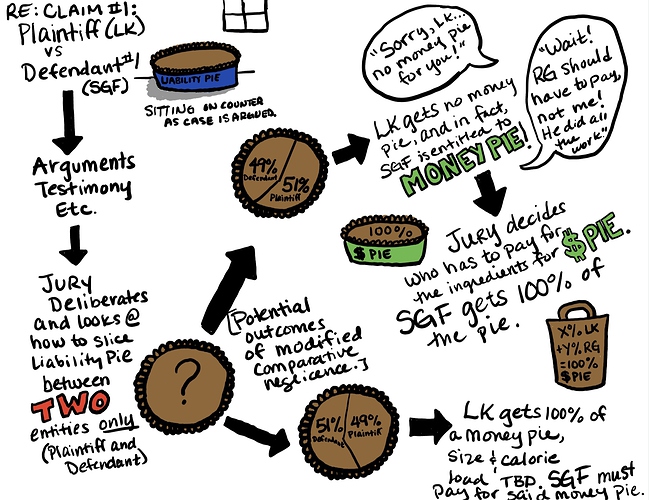 RE: CLAIM #1:
Plaintiff (LK)
vs
Defendant #1
(SGF)
LIABILITY PIE
SITTING ON COUNTER
AS CASE IS ARGUED.
Arguments
Testimony
Etc.
JURY
Deliberates
and looks @
how to slice
Liability Pie
between
TWO
entities only
(Plaintiff and
Defendant)
?
[Potential
outcomes
of modified
comparative
negligence.]
49%
Defendant
51%
Plaintiff
"Sorry, LK...
no money pie
for you!"
LK gets no money
pie, and in fact,
SGF is entitled to
MONEY PIE!
"Wait!
RG should
have to pay,
not me!
He did all
the work"
100%
$ PIE
Jury decides
who has to pay for
the ingredients for $PIE.
SGF gets 100% of
the pie.
X% LK
+Y% RG
=100%
$PIE
51%
Defendant
49%
Plaintiff
LK gets 100% of
a money pie,
size & calorie
load TBD. SGF must
pay for said money pie.